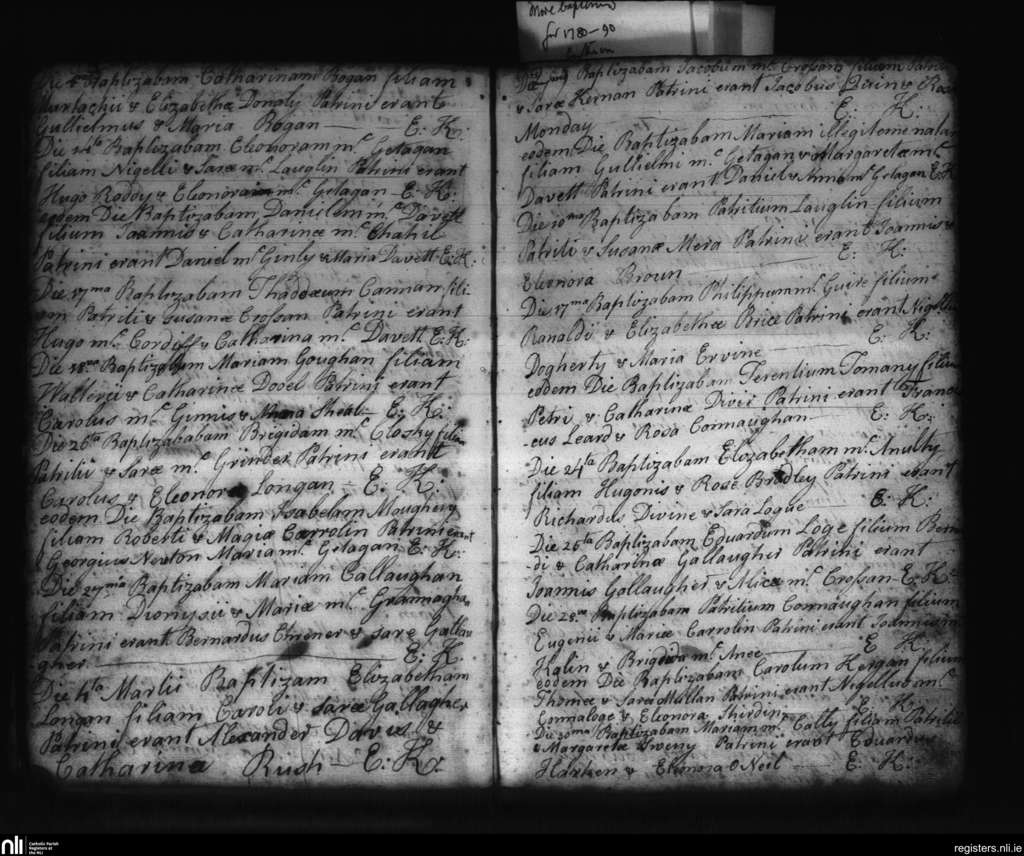 More baptisms
for 1780-90
Die Baptizabam Catharinam Bogan filiam
Murlachii & Elizabethæ Donaly Patrini erant
Gullielmus & Maria Bogan — E: K:
Die 14ª Baptizabam Eleonoram mc Getagan
filiam Nigelli & Saræ mc Lauglin Patrini erant
Hugo Roddy & Eleonora mc Getagan — E: K:
eodem Die Baptizabam Danielem mc Davett
filium Joannis & Catharinæ mc Chahil
Patrini erant Daniel mc Ginly & Maria Davett E: K:
Die 17ma Baptizabam Thaddæum Cannan fili-
um Patritii & Susanæ Crossan Patrini erant
Hugo mc Cordiff & Catharina mc Davett E: K:
Die 18ma Baptizabam Mariam Goughan filiam
Walterii & Catharinæ Dovel Patrini erant
Carolus mc Ginnis & Sheal — E: K:
Die 26ta Baptizababam Brigidam mc Closky filiam
Patritii & Saræ mc Grinder Patrini erant
Carolus & Eleonora Longan — E: K:
eodem Die Baptizabam Isabelam Moughiny
filiam Roberti & Magiæ Carrolin Patrini erant
Georgius Newton Maria mc Getagan E: K:
Die 27ma Baptizabam Mariam Callaughan
filiam Dionysii & Mariæ mc Grannaghan
Patrini erant Bernardus & Sara Gallau
gher — E: K:
Die 4ta Martii Baptizam Elizabetham
Longan filiam Caroli & Saræ Gallagher
Patrini erant Alexander Davis &
Catharina Rush — E: K:
Baptizabam Jacobum mc Crossan filium
& Saræ Kernan Patrini erant Jacobus Quin &
Monday — E: K:
eodem Die Baptizabam Mariam illegiteme natam
filiam Gullielmi mc Getagan & Margaretæ mc
Davett Patrini erant Daniel & Anna mc Getagan E: K
Die 10ma Baptizabam Patritium Lauglin filium
Patriti & Susanæ Mera Patrini erant Joannis &
Eleonora Broun — E: K:
Die 17ma Baptizabam Philippum mc Guire filium
Ranaldi & Elizabethæ Brice Patrini erant Nigellus
Dogherty & Maria Ervine — E: K:
eodem Die Baptizabam Terentium Tomany filium
Petri & Catharinæ Divir Patrini erant Francis
cus Leard & Rosa Connaughan — E: K:
Die 24ta Baptizabam Elizabetham mc Anulty
filiam Hugonis & Rosæ Bradley Patrini erant
Richardus Divine & Sara Logue — E: K:
Die 26ta Baptizabam Eduardum Loge filium Bernar
-di & Catharinæ Gallaugher Patrini erant
Joannis Gallaugher & Alice mc Crossan E: K:
Die 28va Baptizabam Patritium Connaughan filium
Eugenii & Mariæ Carrolin Patrini erant Joannis mc
Kalin & Brigida mc Anee — E: K:
eodem Die Baptizabam Carolum Kergan filium
Thomæ & Saræ Mullan Patrini erant Nigellus mc
Connaloge & Eleonora Shirdin — E: K
Die 30ma Baptizabam Mariam mc Cally filiam Patritii
& Margaretæ Sweny Patrini erant Eduardus
Harken & Elionora O Neil — E: K:
nli
Catholic Parish
Registers at
the NLI
registers.nli.ie